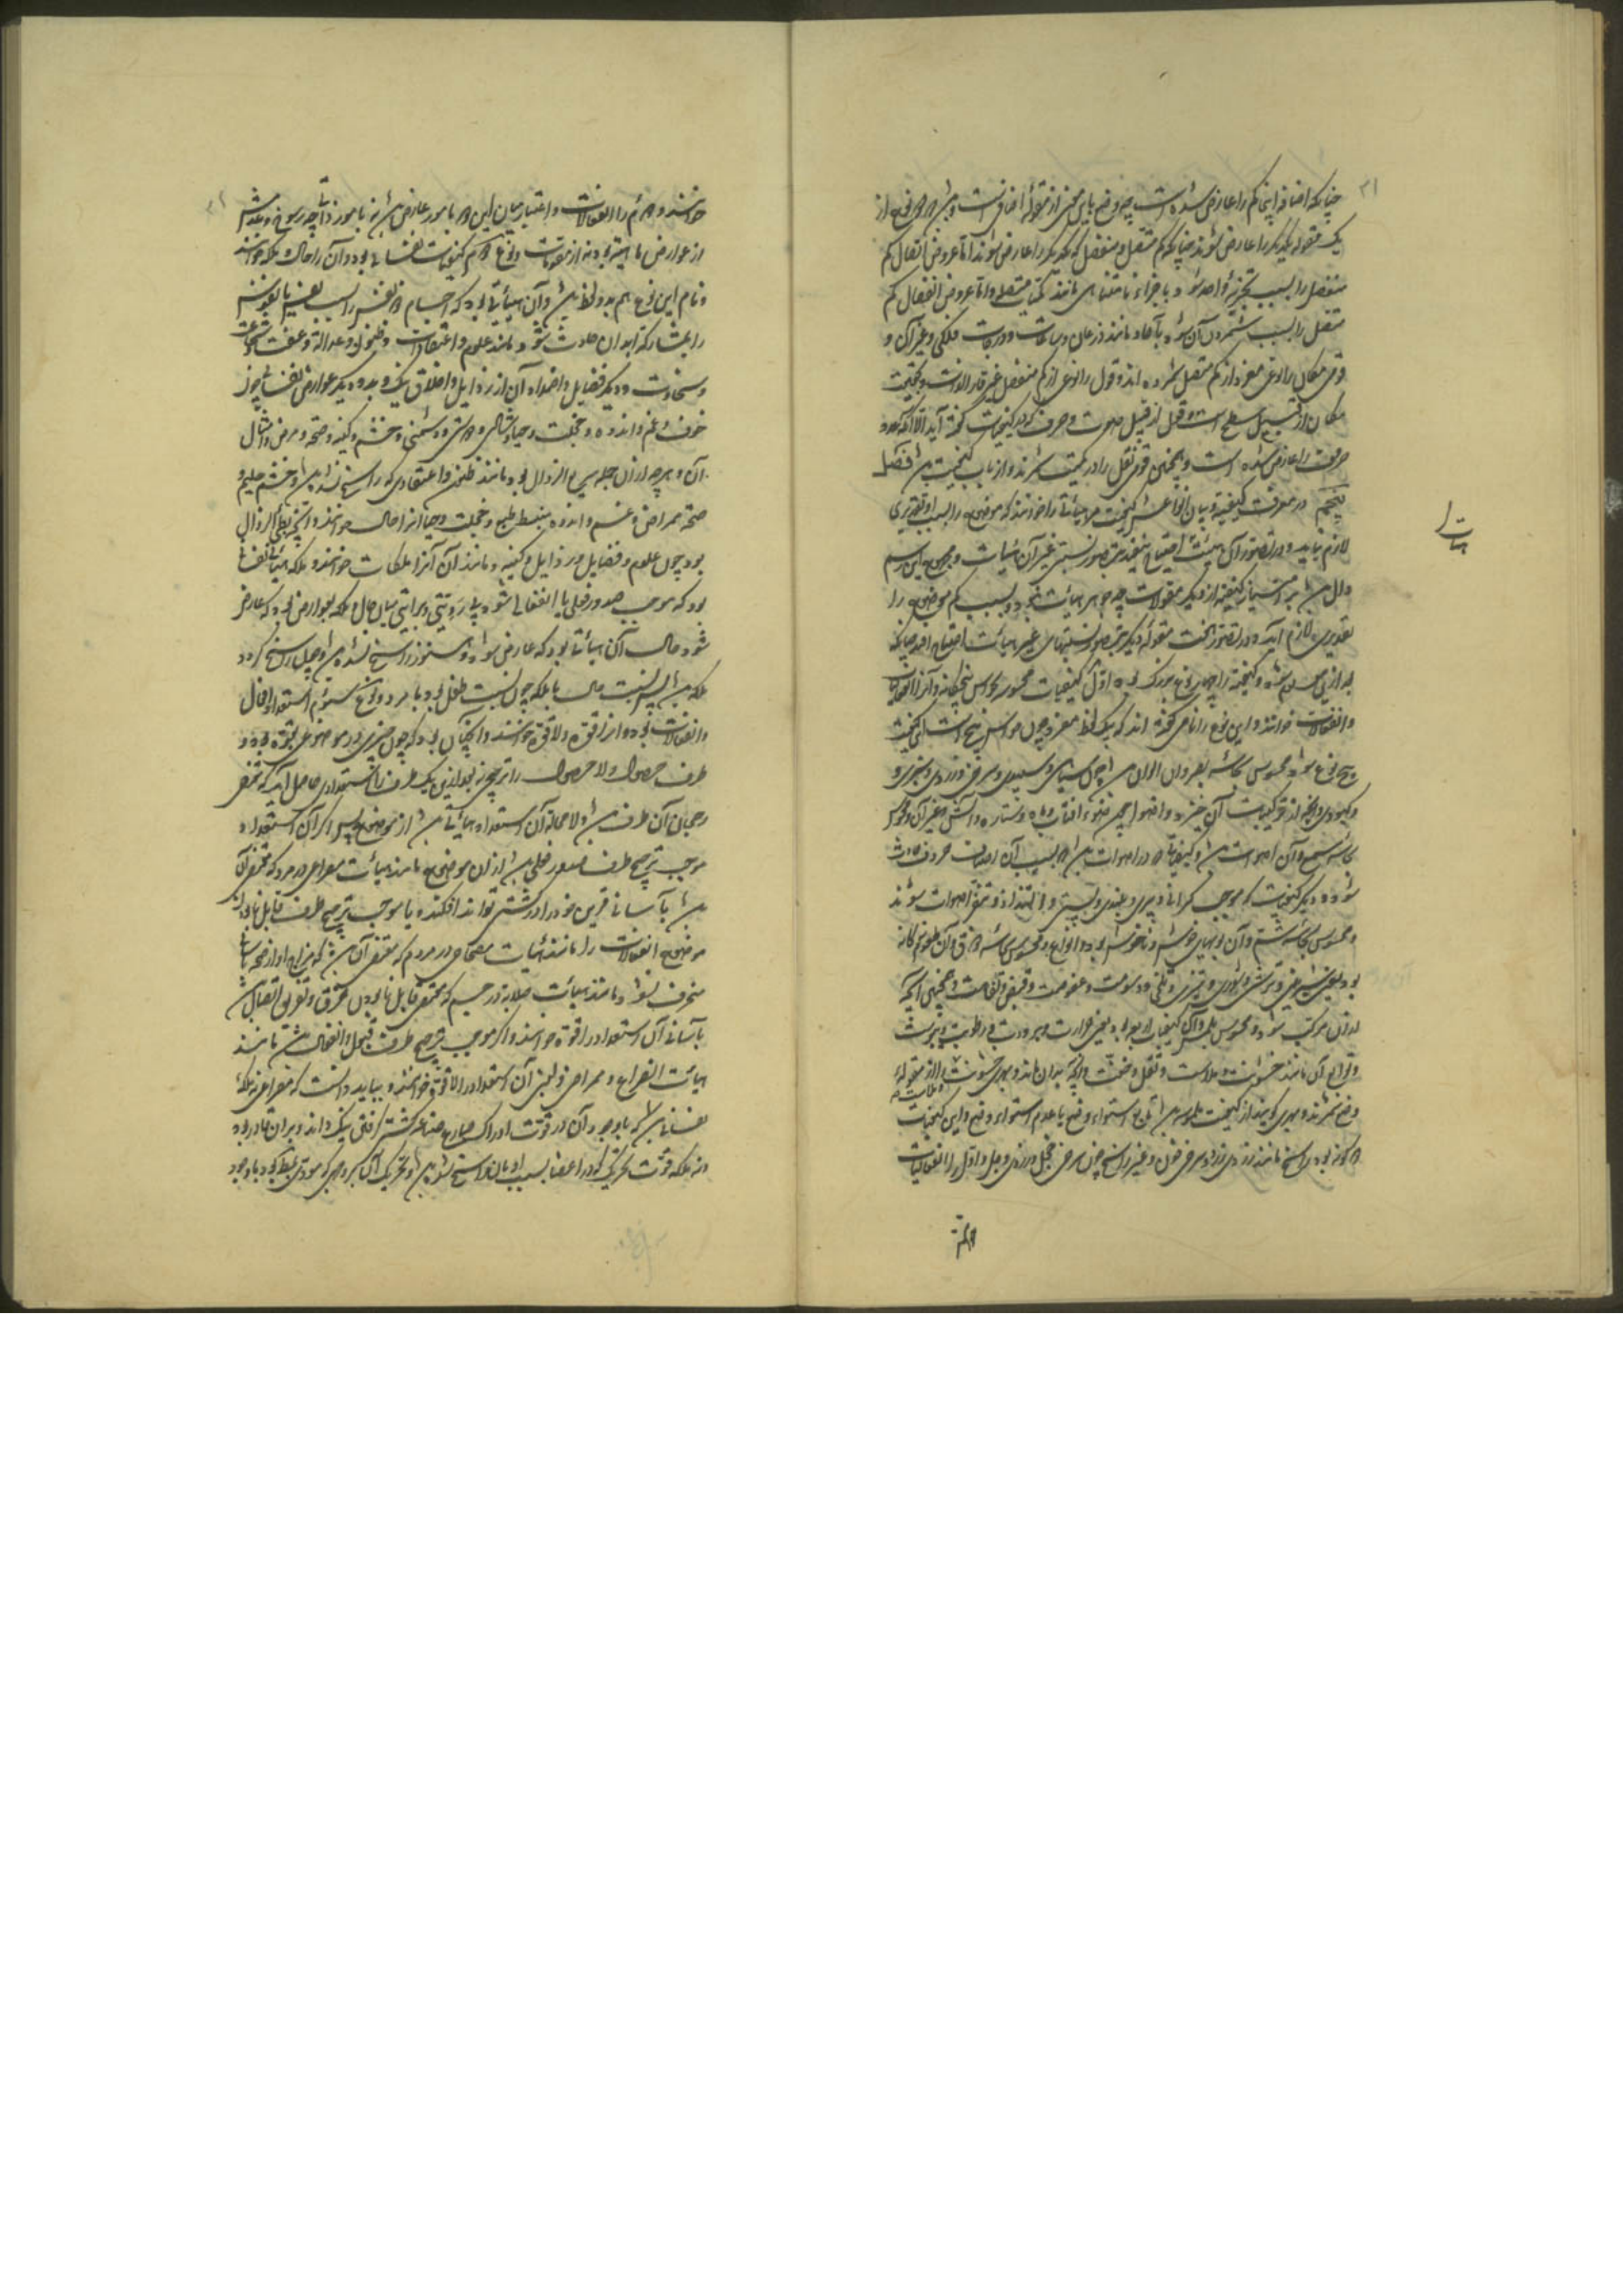 چنانکه اضافه اینجا کم را عارض شده است چه وضع باین معنی از مقوله اضافتست و هر نوع از
یک مقوله یکدیگر را عارض شوند چنانکه کم متصل و منفصل که یکدیگر را عارض شوند اما عروض اتصال کم
منفصل را بسبب تجزیه واحد شود با جزاء نامتناهی مانند کمیات متصل و اما عروض انفصال کم
متصل را بسبب شمردن آن بود بآحاد مانند زمان و ساعات و دورات فلکی و غیر آن و
قومی مکان را نوعی مفرد از کم متصل شمرده‌اند و قول را نوعی از کم منفصل غیر قار الذات و بحقیقت
مکان از قبیل سطح است و قول از قبیل صوت و حرف که در کیفیات گفته آید الا آنکه عدد
حروف را عارض شده است و همچنین قومی ثقل را در کمیت شمرند و از باب کیفیت است فصل
پنجم در معرفت کیفیت و بیان انواعش کیفیت هر هیأتی را خوانند که موضوع را بسبب او تقدیری
لازم نیاید و در تصور آن هیئت احتیاج نیفتد بتصور نسبتی غیر آن هیأت و مجموع این رسم
دال باشد بر امتیاز کیفیت از دیگر مقولات چه جوهر هیأت نبود و بسبب کم موضوع را
تقدیری لازم آید و در تصور هفت مقوله دیگر بتصور نسبتهای غیر هیأت احتیاج افتد چنانکه
بعد ازین معلوم شود و کیفیت را چهار نوع بزرگ بود اول کیفیات محسوس بحواس پنجگانه و آنرا انفعالیات
و انفعالات خوانند و این نوع را نامی نگفته‌اند که یک لفظ مفرد و چون حواس پنج است این کیفیت
پنج نوع شود محسوس بحاسه بصر و آن الوان باشد چون سیاهی و سپیدی و سرخی و زردی و سبزی و
و کبودی و آنچه از ترکیبات آن خیزد و اضواء چون ضوء آفتاب و ماه و ستاره و آتش و غیر آن و محسوس
بحاسه سمع و آن اصوات باشد و کیفیاتی که در اصوات باشد که بسبب آن اصوات حروف حادث
شود و دیگر کیفیات که موجب گرانی و تیزی و بلندی و پستی و التذاذ و تنفر اصوات شوند
و محسوس بحاسه شم و آن بویهای خوش و ناخوش بود و انواع و محسوس بحاسه ذوق و آن طعوم نه‌گانه
بود یعنی شیرینی و ترشی و شوری و تیزی و تلخی و دسومت و عفوصت و قبض و تفاهت و همچنین آنچه
از آن مرکب شود و محسوس بلمس و آن کیفیات اربعه بود یعنی حرارت و برودت و رطوبت و یبوست
و توابع آن مانند خشونت و ملاست و ثقل و خفت و آنچه بدان ماند و بعضی خشونت را از مقوله
و ملاست
وضع شمرند و بعضی گویند از کیفیت ملموس باشد تابع استواء وضع یا عدم استواء وضع و این کیفیات
دو گونه بود راسخ مانند زردی زر و سرخی خون و غیر راسخ چون سرخی خجل و زردی وجل و اول را انفعالیات
هیأت
خوانند و دوم را انفعالات و اعتبار میان این دو بامور عارض باشد نه بامور ذاتی چه رسوخ و عدمش
از عوارض ماهیت بود نه از مقومات و نوع دوم کیفیات نفسانی بود و آن را حال و ملکه خوانند
و نام این نوع هم بدو لفظ باشد و آن هیأتی بود که اجسام ذو نفس را بسبب نفس یا نفوس
را بمشارکت ابدان حادث شود مانند علوم و اعتقادات و ظنون و عدالت و عفت و شجاعت
و سخاوت و دیگر فضایل و اضداد آن از رذایل و اخلاق نیک و بد و دیگر عوارض نفسانی چون
خوف و غم و اندوه و خجلت و حیا و شادی و دوستی و دشمنی و خشم و کینه و صحة و مرض و امثال
آن و هرچه از آن جمله سریع الزوال بود مانند ظنون و اعتقادی که راسخ نشده باشد و خشم حلیم و
صحة ممراض و غم و اندوه منبسط طبع و خجلت و حیا آنرا حال خوانند و آنچه بطی الزوال
بود چون علوم و فضایل و رذایل و کینه و مانند آن آنرا ملکات خوانند و ملکه هیأتی نفسانی
بود که موجب صدور فعلی یا انفعالی شود بی رویتی و مباینت میان حال و ملکه بعوارض بود که عارض
شود حالت آن هیأتی بود که عارض شود و هنوز راسخ نشده باشد و چون راسخ گردد
ملکه باشد پس نسبت حال با ملکه چون نسبت طفل بود با مرد و نوع سیوم استعداد افعال
و انفعالات بود و آنرا قوة و لاقوة خوانند و آنچنان بود که چون چیزی در موضوعی بقوة بود و
طرف حصول و لاحصول را ترجیح نبود ازین یک طرف را استعدادی حاصل آید که مقتضی
رجحان آن طرف باشد و لامحاله آن استعداد هیأتی باشد از موضوع پس اگر آن استعداد
موجب ترجیح طرف صدور فعلی باشد از آن موضوع مانند هیأت مصراعی در مرد که مقتضی آن
باشد بآسانی قرین خود را در کشتی تواند افکند یا موجب ترجیح طرف قابل نابودن
موضوع انفعالات را مانند هیأت مصحاحی در مردم که مقتضی آن باشد که مزاج او از صحت بآسانی
منحرف نشود و مانند هیأت صلابة در جسم که مقتضی قابل نابودن تفرق و تفریق اتصال باشد
بآسانی آن استعداد را قوة خوانند و اگر موجب ترجیح طرف قبول و انفعال باشد مانند
هیأت انصراع و ممراضی و لین آن استعداد را لاقوة خوانند و بباید دانست که مصراعی نه ملکه
نفسانی باشد که با وجود آن در قوت ادراک صارع صناعت کشتی گرفتن نیک داند و بر آن قادر بود
و نه ملکه قوت تحریک که در اعضا بسبب ادمان راسخ شود و تحریک آن بر وجهی که مودی بغلبه بود با وجود